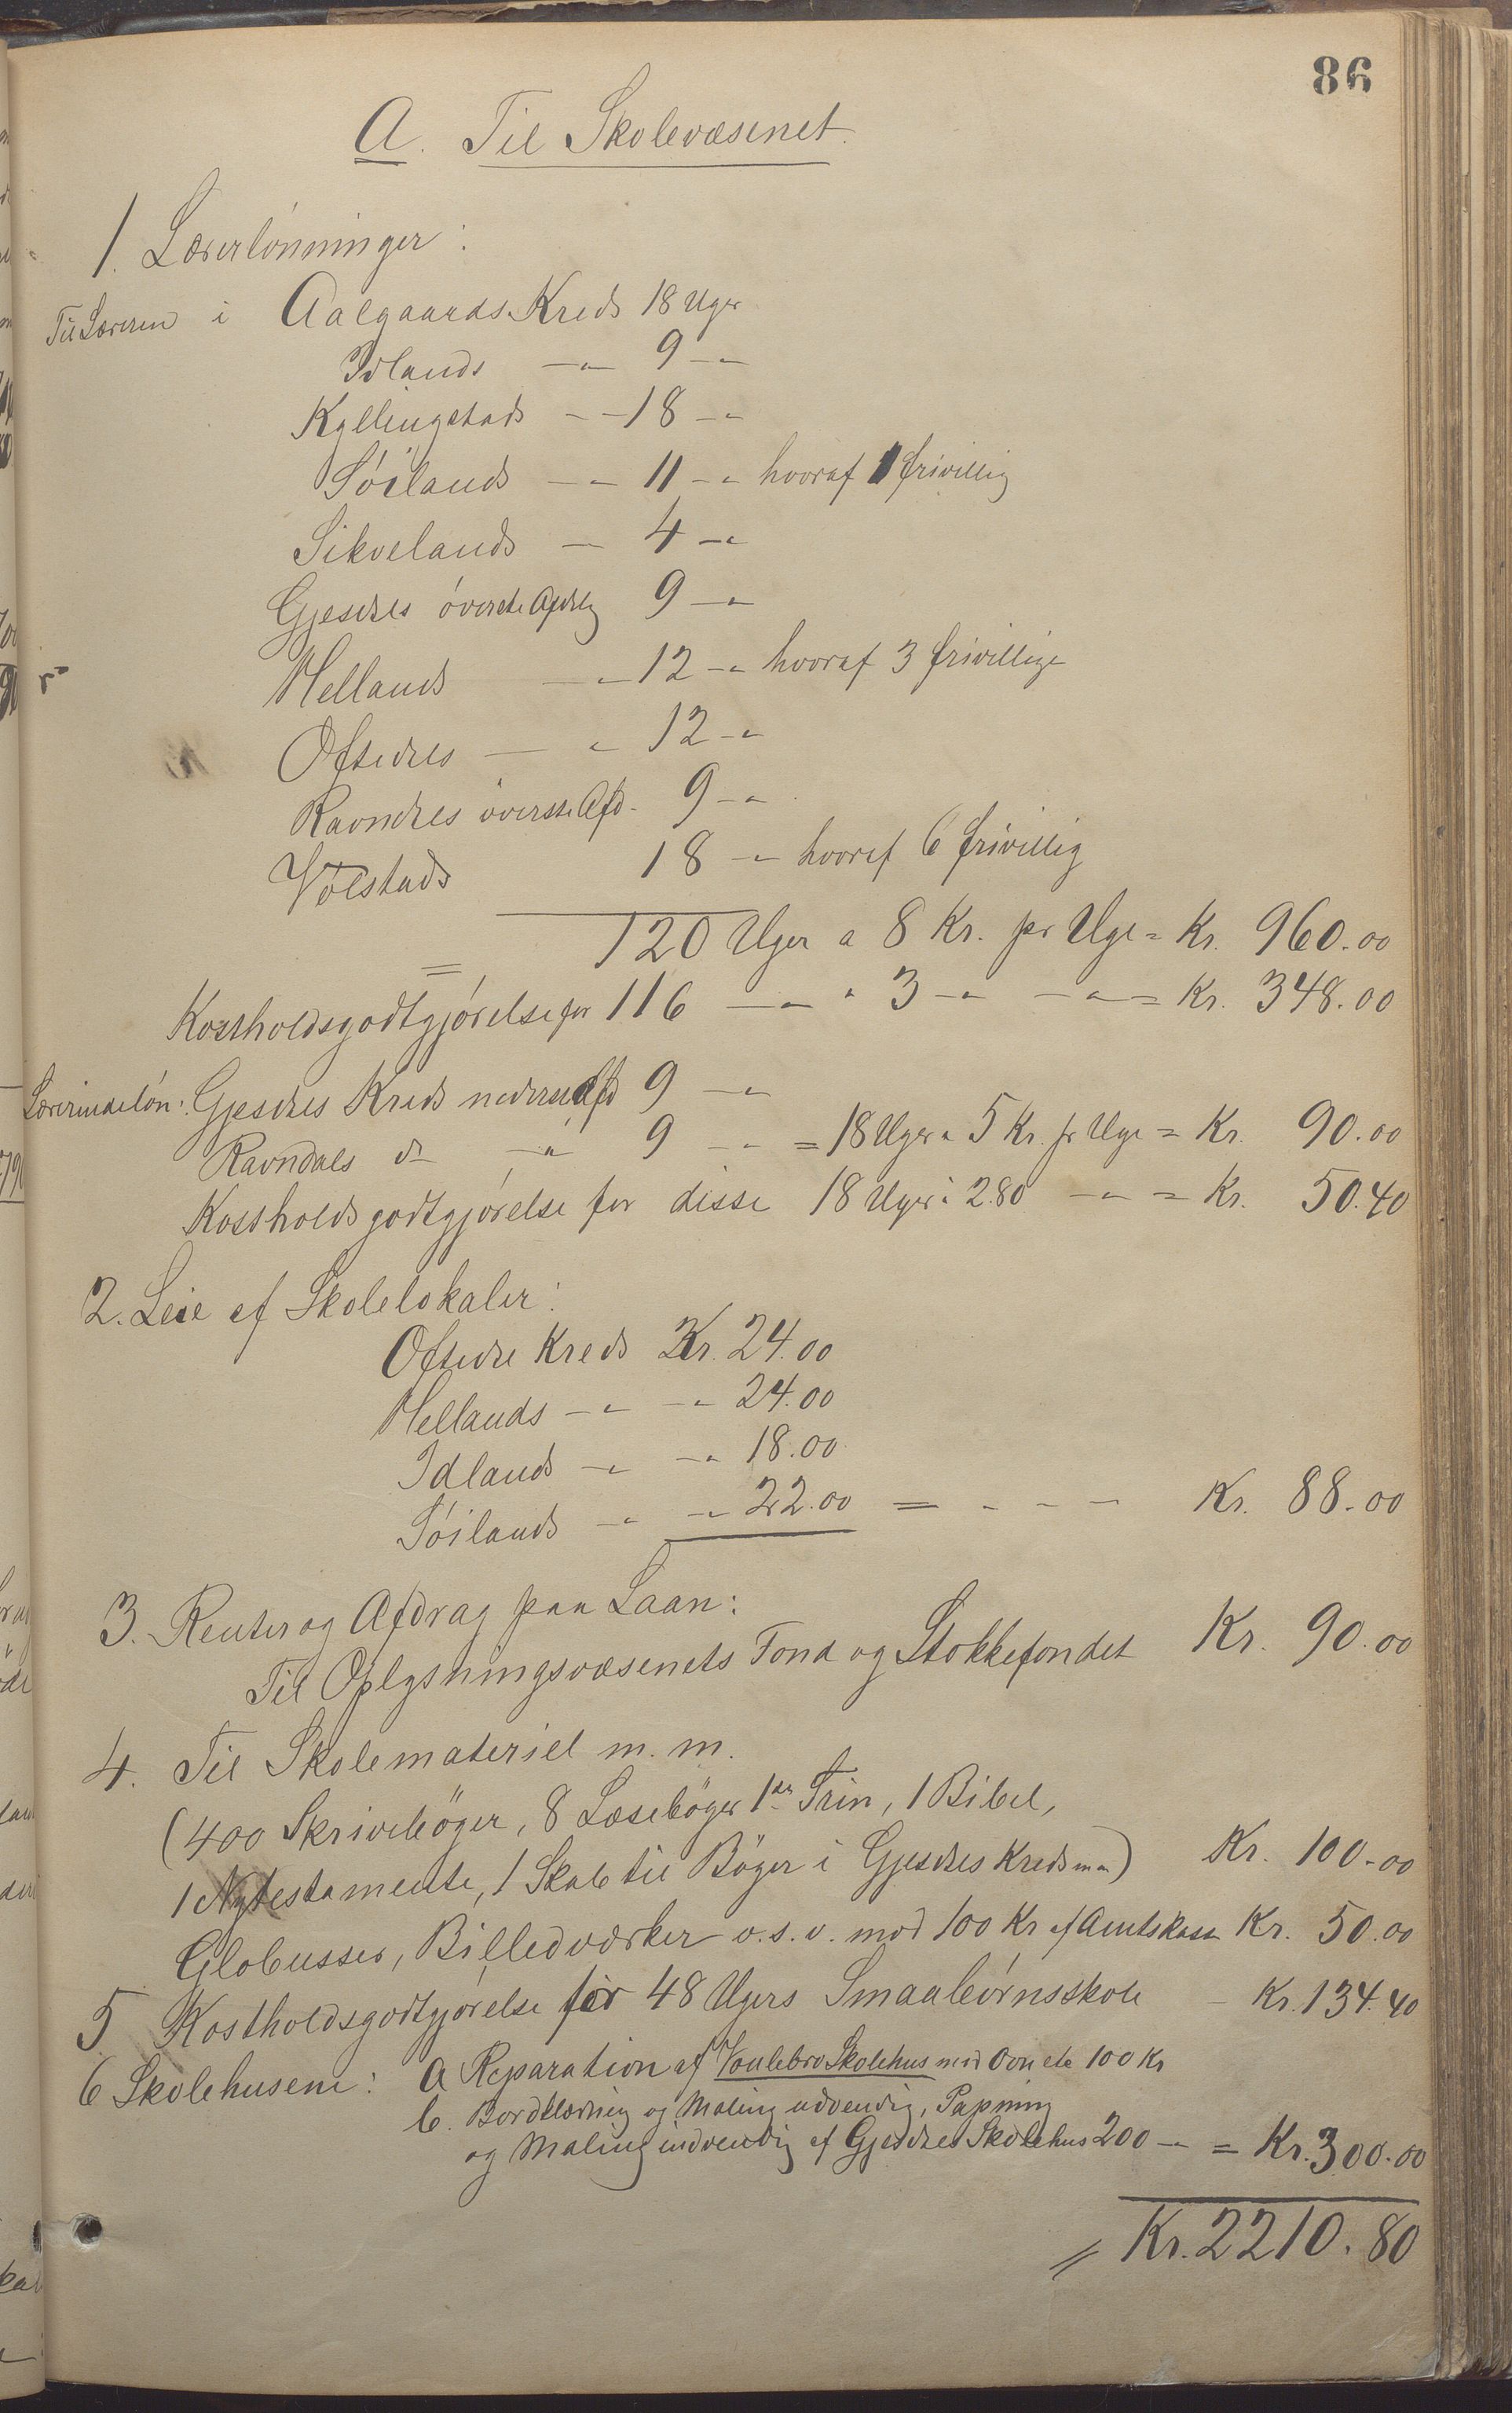 86
A. Til Skolevæsenet.
1. Lærerlønninger:
Til Læreren i Aalgaards Kreds 18 Uger
Idlands —"— 9 —"
Kyllingstads — — 18 —"
Søilands — — 11 —" hvoraf 1 frivillig
Sikvelands — 4 —"
Gjesdals øverste Afdlg 9 —"
Hellands —"— 12 —" hvoraf 3 frivillige
Oftedals — " 12 —"
Ravndals øverste Afd. 9 —"
Vølstads 18 —" hvoraf 6 frivillig
120 Uger a 8 Kr. pr Uge = Kr. 960.00
Kostholdsgodtgjørelse for 116 —"— " 3 —" —"— = Kr. 348.00
Lærerindeløn: Gjesdals Kreds nederste Afd 9 —"
Ravndals do —"— 9 —"— = 18 Uger a 5 Kr. pr Uge = Kr. 90.00
Kostholdsgodtgjørelse for disse 18 Uger a 2.80 —"— = Kr. 50.40
2. Leie af Skolelokaler:
Oftedal Kreds Kr. 24.00
Hellands —"— —"— 24.00
Idlands —"— —"— 18.00
Søilands —"— —"— 22.00 = - - - Kr. 88.00
3. Renter og Afdrag paa Laan:
Til Oplysningsvæsenets Fond og Stokkefondet Kr. 90.00
4. Til Skolemateriel m. m.
(400 Skrivebøger, 8 Læsebøger 1ste Trin, 1 Bibel,
1 Nytestamente, 1 Skab til Bøger i Gjesdals Kreds m m) Kr. 100.00
Globusser, Billedværker o.s.v. mod 100 Kr af Amtskassen Kr. 50.00
5 Kostholdsgodtgjørelse for 48 Ugers Smaabørnsskole - Kr. 134.40
6 Skolehusene: a Reparation af Skolehus med Ovn etc 100 Kr
b. Bordklædning og Maling udvendig, Papning
og Maling indvendig af Gjesdals Skolehus 200 —"— = Kr. 300.00
= Kr. 2210.80